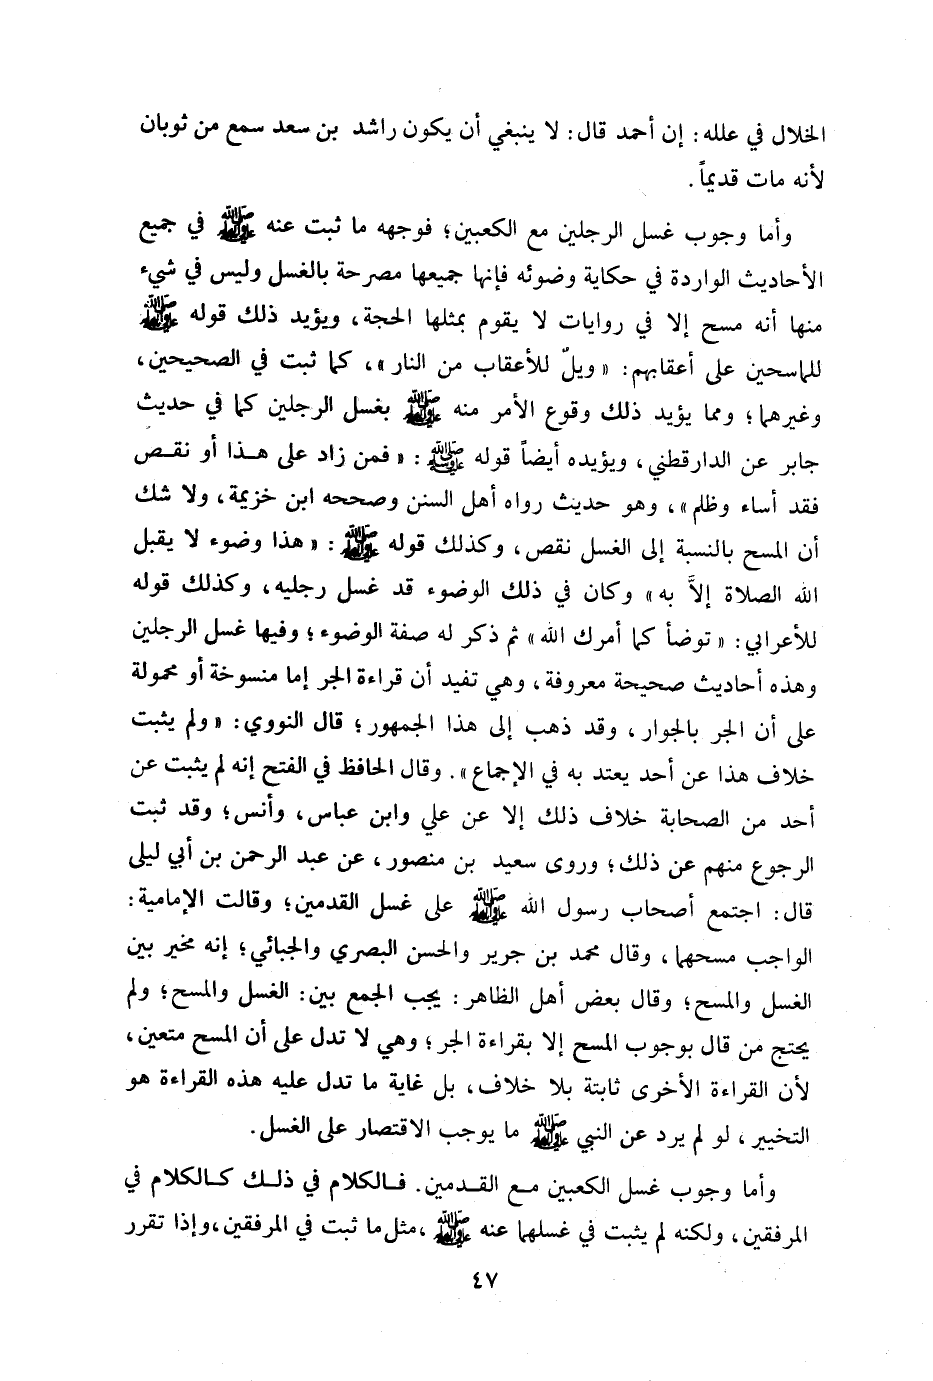 الخلال في علله: إن أحمد قال: لا ينبغي أن يكون راشد بن سعد سمع من ثوبان
لأنه مات قديماً.
وأما وجوب غسل الرجلين مع الكعبين؛ فوجهه ما ثبت عنه ﷺ في جميع
الأحاديث الواردة في حكاية وضوئه فإنها جميعها مصرحة بالغسل وليس في شيء
منها أنه مسح إلا في روايات لا يقوم بمثلها الحجة، ويؤيد ذلك قوله ﷺ
للماسحين على أعقابهم: «ويلٌ للأعقاب من النار»، كما ثبت في الصحيحين،
وغيرهما؛ ومما يؤيد ذلك وقوع الأمر منه ﷺ بغسل الرجلين كما في حديث
جابر عن الدارقطني، ويؤيده أيضاً قوله ﷺ: «فمن زاد على هذا أو نقص
فقد أساء وظلم»، وهو حديث رواه أهل السنن وصححه ابن خزيمة، ولا شك
أن المسح بالنسبة إلى الغسل نقص، وكذلك قوله ﷺ: «هذا وضوء لا يقبل
الله الصلاة إلاَّ به» وكان في ذلك الوضوء قد غسل رجليه، وكذلك قوله
للأعرابي: «توضأ كما أمرك الله» ثم ذكر له صفة الوضوء؛ وفيها غسل الرجلين
وهذه أحاديث صحيحة معروفة، وهي تفيد أن قراءة الجر إما منسوخة أو محمولة
على أن الجر بالجوار، وقد ذهب إلى هذا الجمهور؛ قال النووي: «ولم يثبت
خلاف هذا عن أحد يعتد به في الإجماع». وقال الحافظ في الفتح إنه لم يثبت عن
أحد من الصحابة خلاف ذلك إلا عن علي وابن عباس، وأنس؛ وقد ثبت
الرجوع منهم عن ذلك؛ وروى سعيد بن منصور، عن عبد الرحمن بن أبي ليلى
قال: اجتمع أصحاب رسول الله ﷺ على غسل القدمين؛ وقالت الإمامية:
الواجب مسحهما، وقال محمد بن جرير والحسن البصري والجبائي؛ إنه مخير بين
الغسل والمسح؛ وقال بعض أهل الظاهر: يجب الجمع بين: الغسل والمسح؛ ولم
يحتج من قال بوجوب المسح إلا بقراءة الجر؛ وهي لا تدل على أن المسح متعين،
لأن القراءة الأخرى ثابتة بلا خلاف، بل غاية ما تدل عليه هذه القراءة هو
التخيير، لو لم يرد عن النبي ﷺ ما يوجب الاقتصار على الغسل.
وأما وجوب غسل الكعبين مع القدمين. فالكلام في ذلك كالكلام في
المرفقين، ولكنه لم يثبت في غسلهما عنه ﷺ، مثل ما ثبت في المرفقين، وإذا تقرر
٤٧